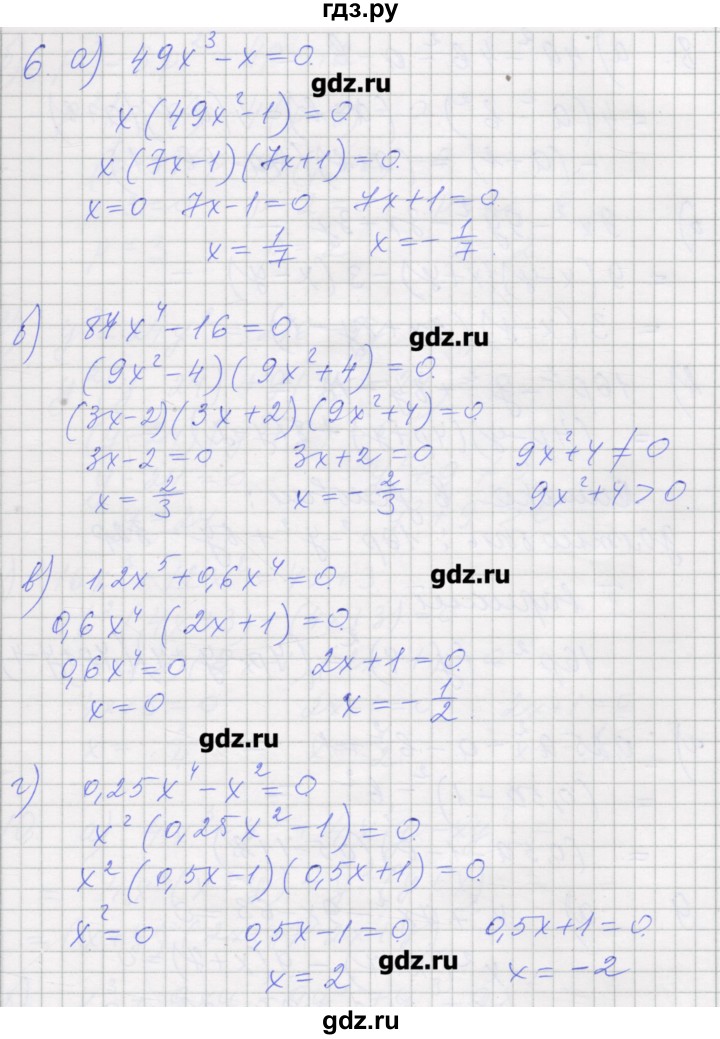 гдз.ру
6 а) 49x³ - x = 0.
gdz.ru
x(49x² - 1) = 0.
x(7x-1)(7x+1) = 0.
x = 0 7x-1 = 0 7x+1 = 0
x = 1/7 x = -1/7
б) 81x⁴ - 16 = 0.
gdz.ru
(9x² - 4)(9x² + 4) = 0.
(3x-2)(3x+2)(9x²+4) = 0
3x-2 = 0 3x+2 = 0 9x²+4 ≠ 0
x = 2/3 x = -2/3 9x²+4 > 0.
в) 1,2x⁵ + 0,6x⁴ = 0.
gdz.ru
0,6x⁴ (2x+1) = 0.
0,6x⁴ = 0 2x+1 = 0.
x = 0 x = -1/2.
gdz.ru
г) 0,25x⁴ - x² = 0
x²(0,25x² - 1) = 0.
x²(0,5x-1)(0,5x+1) = 0.
x² = 0 0,5x-1 = 0. 0,5x+1 = 0.
x = 2 gdz.ru x = -2
gdz.ru